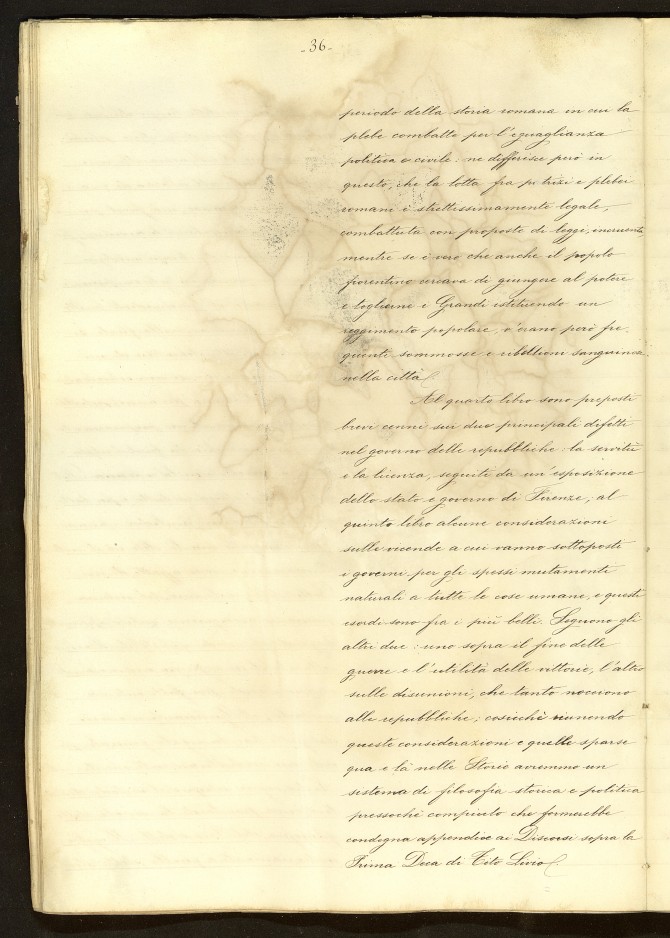 -36-
periodo della storia romana in cui la
plebe combatte per l'eguaglianza
politica e civile: ne differisce però in
questo, che la lotta fra patrizi e plebei
romani è strettissimamente legale,
combattuta con proposte di leggi, incruenta,
mentre se è vero che anche il popolo
fiorentino cercava di giungere al potere
e toglierne i Grandi istituendo un
reggimento popolare, v'erano però fre-
quenti sommosse e ribellioni sanguinose
nella città
Al quarto libro sono preposti
brevi cenni sui due principali difetti
nel governo delle repubbliche: la servitù
e la licenza, seguiti da un'esposizione
dello stato e governo di Firenze; al
quinto libro alcune considerazioni
sulle vicende a cui vanno sottoposti
i governi per gli spessi mutamenti
naturali a tutte le cose umane, e questi
esordi sono fra i più belli. Seguono gli
altri due: uno sopra il fine delle
guerre e l'utilità delle vittorie, l'altro
sulle disunioni, che tanto nocciono
alle repubbliche; cosicchè riunendo
queste considerazioni e quelle sparse
qua e là nelle Storie avremmo un
sistema di filosofia storica e politica
pressochè compiuto che formerebbe
condegna appendice ai Discorsi sopra la
Prima Deca di Tito Livio